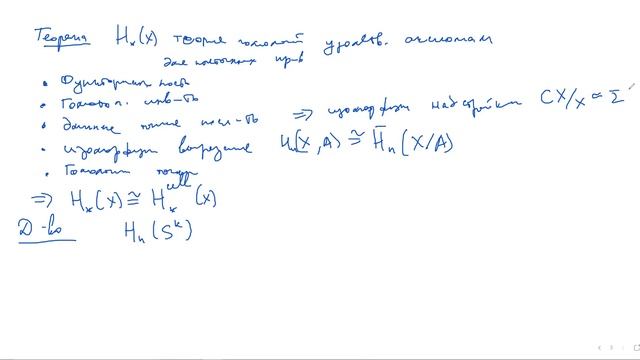 Теорема H_*(X) теория гомологий удовлетв. аксиомам
для клеточных пр-в
• Функториальность
• Гомотоп. инв-ть
• длинные точные посл-ти
• изоморфизм вырезания H_n(X, A) ≅ H̄_n(X/A)
• Гомологии точки
⇒ изоморфизм надстройки CX/X ≃ Σ
⇒ H_*(X) ≅ H_*^{cell}(X)
Д-во H_n(S^k)